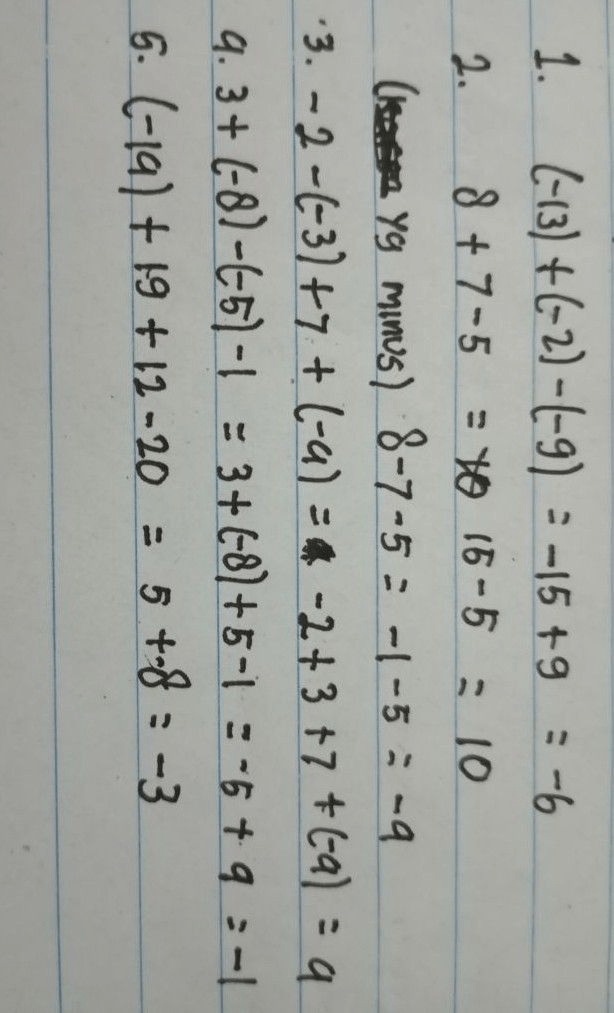 1. (-13) + (-2) - (-9) = -15 + 9 = -6
2. 8 + 7 - 5 = 15 - 5 = 10
( yg minus) 8 - 7 - 5 = -1 - 5 = -4
3. -2 - (-3) + 7 + (-4) = -2 + 3 + 7 + (-4) = 4
4. 3 + (-8) - (-5) - 1 = 3 + (-8) + 5 - 1 = -5 + 4 = -1
5. (-14) + 19 + 12 - 20 = 5 + -8 = -3